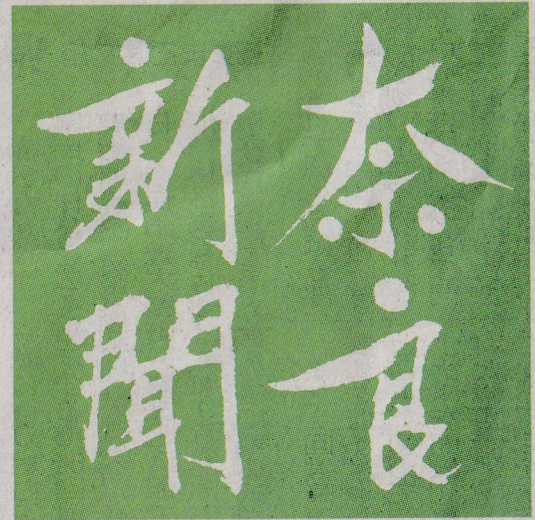 奈良
新聞